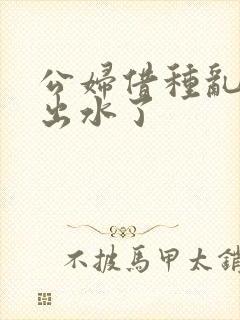 公婦借種亂
出水了
不披馬甲太銷